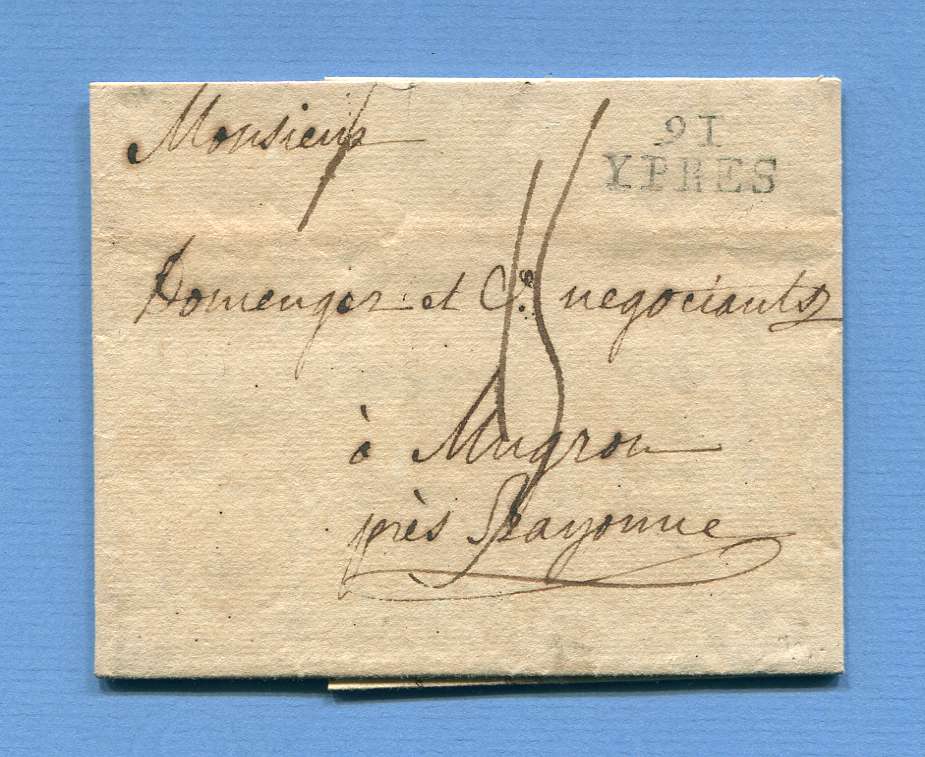 91
YPRES
Monsieur
Domenger et Cie negociants
à Mugron
près Bayonne